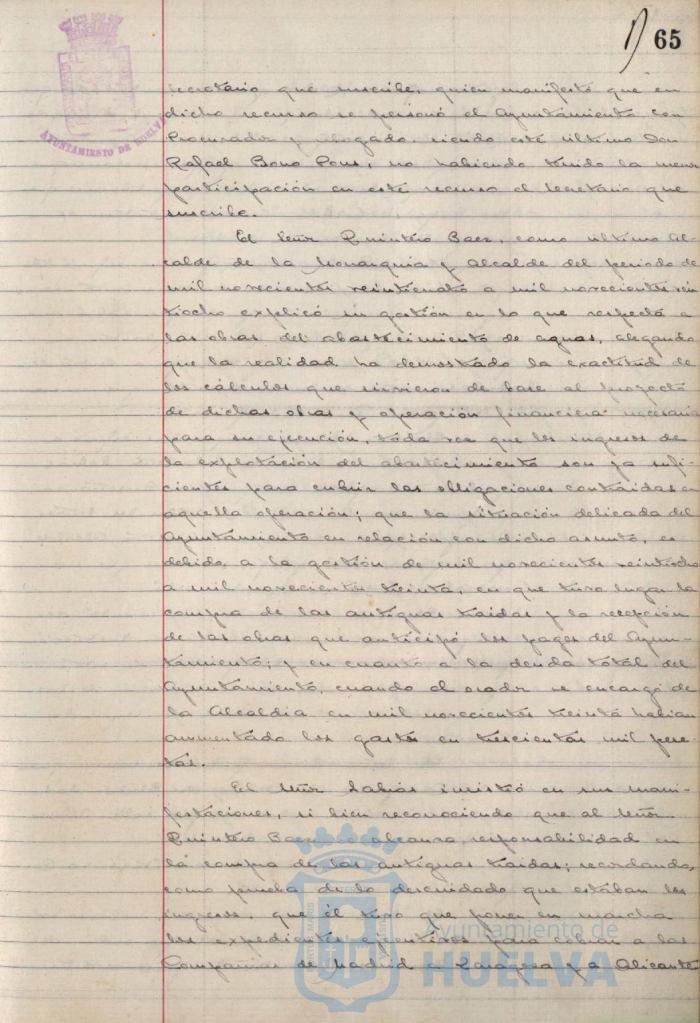 65
AYUNTAMIENTO DE HUELVA
secretario que suscribe, quien manifestó que en
dicho recurso se personó el Ayuntamiento con
Procurador y abogado, siendo este último Don
Rafael Bono Pons, no habiendo tenido la menor
participación en este recurso el Secretario que
suscribe.
El Señor Quintero Baez, como último Al-
calde de la Monarquia y Alcalde del periodo de
mil novecientos veinticuatro a mil novecientos vein
tiocho explicó su gestión en lo que respecta a
las obras del abastecimiento de aguas, alegando
que la realidad ha demostrado la exactitud de
los cálculos que sirvieron de base al proyecto
de dichas obras y operación financiera necesaria
para su ejecución, toda vez que los ingresos de
la explotación del abastecimiento son ya sufi-
cientes para cubrir las obligaciones contraidas en
aquella operación; que la situación delicada del
Ayuntamiento en relación con dicho asunto, es
debida a la gestión de mil novecientos veintiocho
a mil novecientos treinta, en que tuvo lugar la
compra de las antiguas traidas y la recepción
de las obras que anticipó los pagos del Ayun-
tamiento; y en cuanto a la deuda total del
Ayuntamiento, cuando el orador se encargó de
la Alcaldia en mil novecientos treinta habian
aumentado los gastos en trescientas mil pese-
tas.
El Señor Sabras insistió en sus mani-
festaciones, si bien reconociendo que al Señor
Quintero Baez alcanza responsabilidad en
la compra de las antiguas traidas; recordando,
como prueba de lo descuidado que estaban los
ingresos, que él tuvo que poner en marcha
los expedientes ejecutivos para cobrar a las
Compañias de Madrid a Zaragoza y a Alicante
Ayuntamiento de
HUELVA